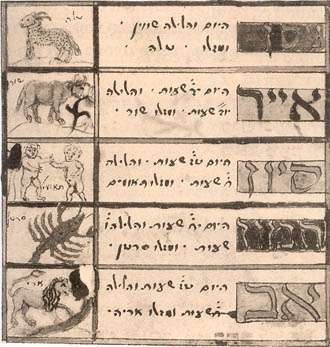 ניסן
היום והלילה שווין
ומזלו טלה
טלה
אייר
היום י״ד שעות והלילה
י׳ שעות ומזלו שור
שור
סיון
היום ט״ו שעות והלילה
ט׳ שעות ומזלו תאומים
תאומים
תמוז
היום שעות והלילה
שעות ומזלו סרטן
סרטן
אב
היום שעות והלילה
שעות ומזלו אריה
ארי